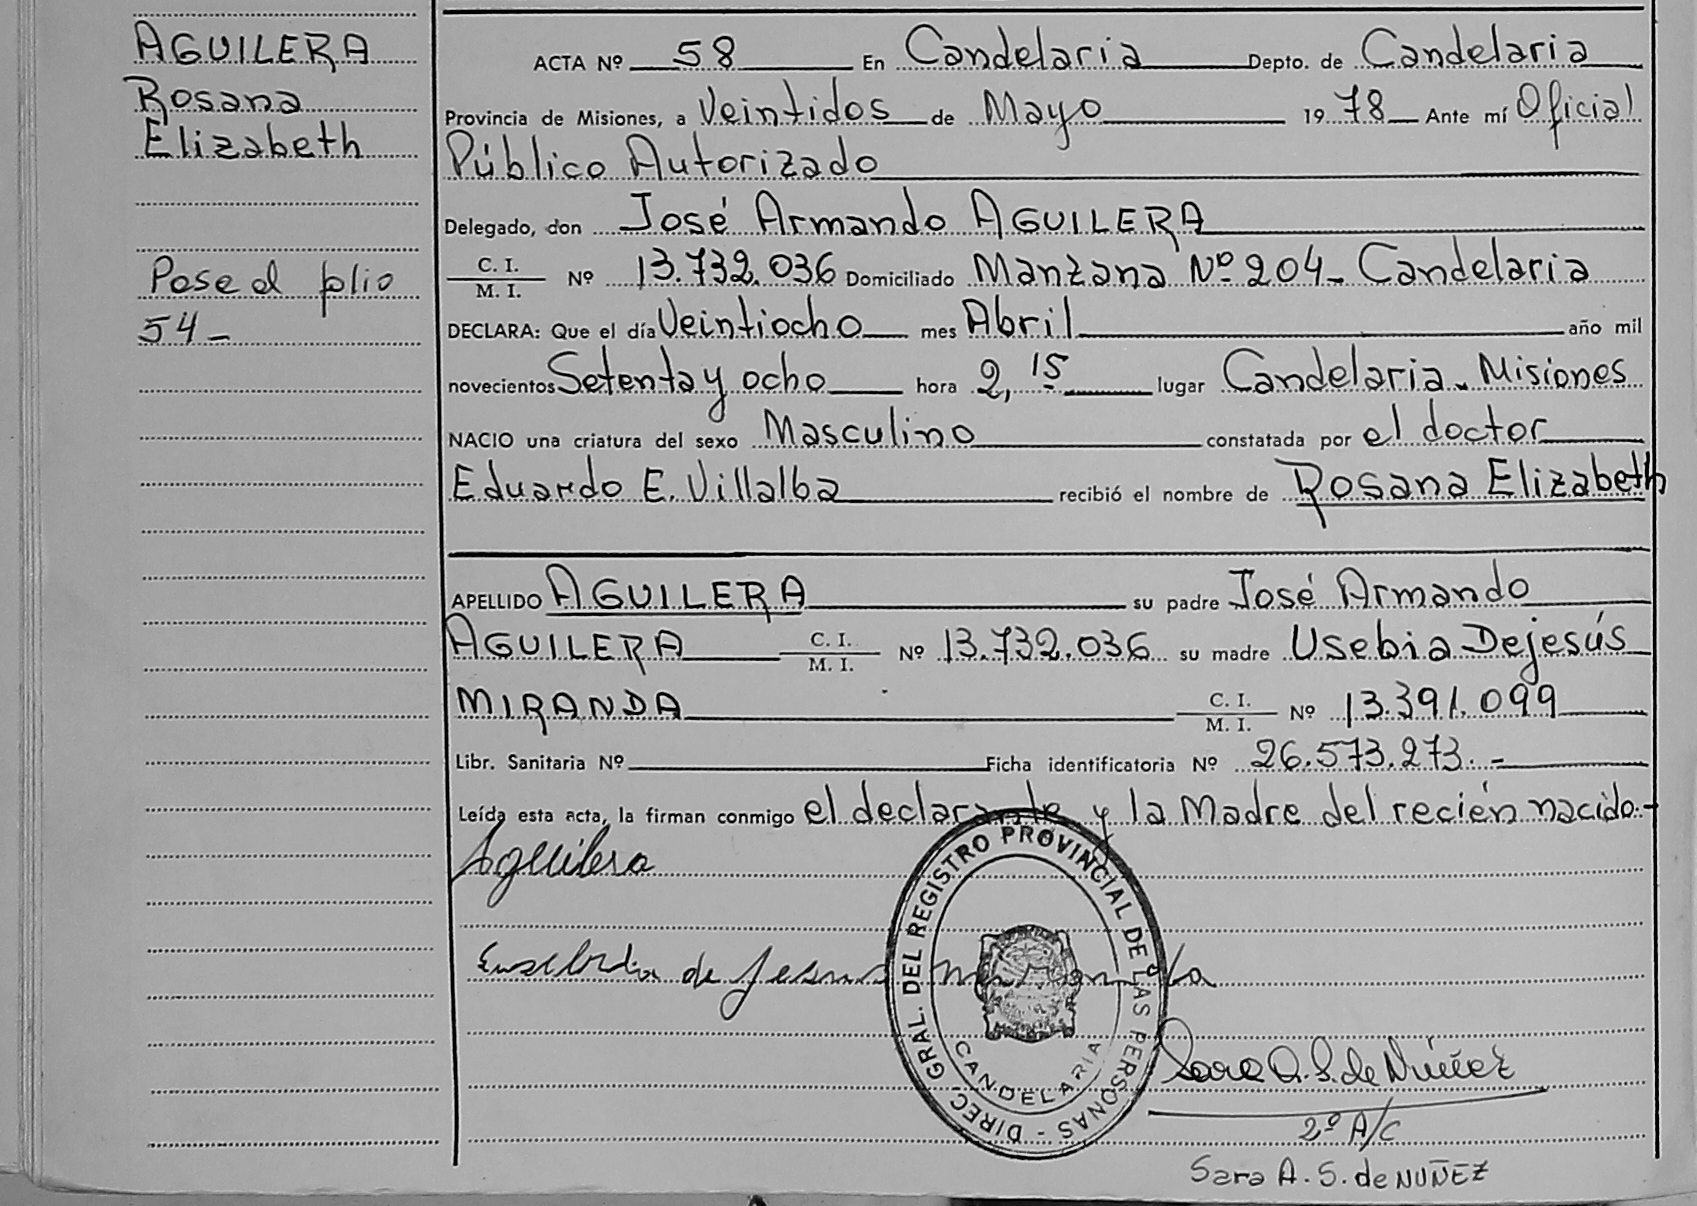 AGUILERA
Rosana
Elizabeth
Pase al folio
54-
ACTA Nº 58 En Candelaria Depto. de Candelaria
Provincia de Misiones, a Veintidos de Mayo 1978 Ante mí Oficial
Público Autorizado
Delegado, don José Armando AGUILERA
C. I.
M. I. Nº 13.732.036 Domiciliado Manzana Nº 204- Candelaria
DECLARA: Que el día Veintiocho mes Abril año mil
novecientos Setenta y ocho hora 2,15 lugar Candelaria - Misiones
NACIO una criatura del sexo Masculino constatada por el doctor
Eduardo E. Villalba recibió el nombre de Rosana Elizabeth
APELLIDO AGUILERA su padre José Armando
AGUILERA C. I. M. I. Nº 13.732.036 su madre Usebia Dejesús
MIRANDA C. I. M. I. Nº 13.391.099
Libr. Sanitaria Nº Ficha identificatoria Nº 26.573.273.-
Leída esta acta, la firman conmigo el declarante y la Madre del recién nacido.-
Aguilera
DIREC. GRAL. DEL REGISTRO PROVINCIAL DE LAS PERSONAS -
CANDELARIA
de Jesus Miranda
Sara A. S. de Núñez
2º A/C
Sara A. S. de NUÑEZ